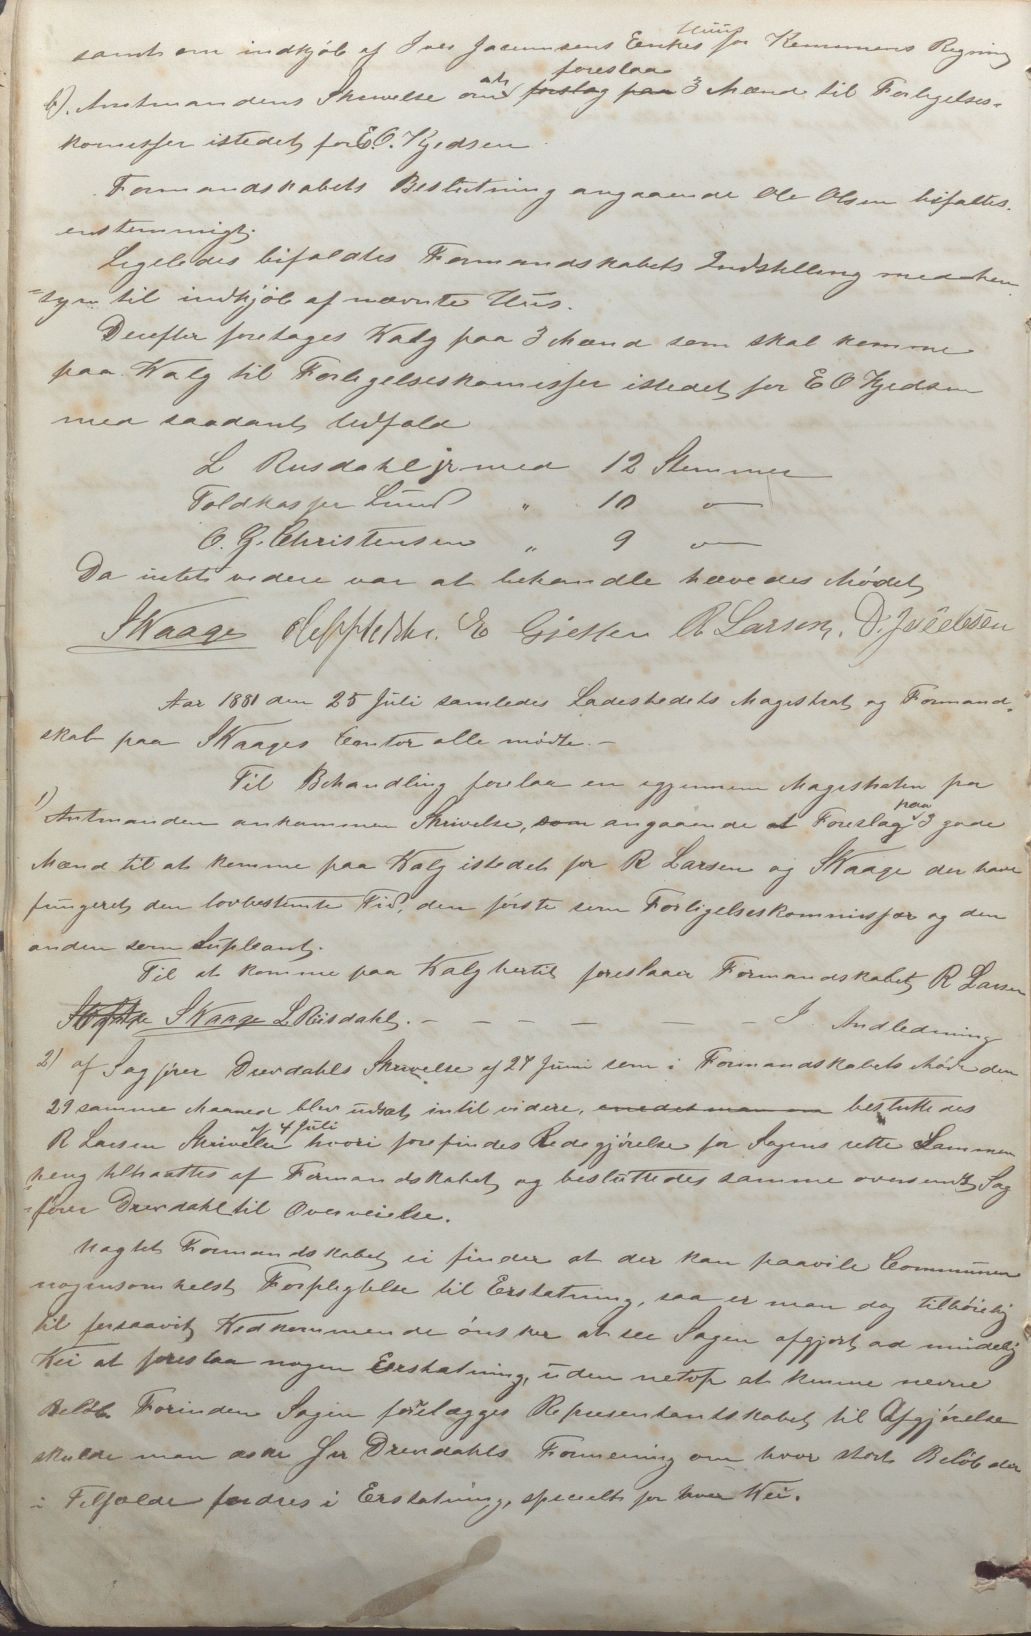 samt om indkjöb af Iver Jacunnsens Enkes Huus for Kommunens Regning
6). Amtmandens Skrivelse om at forslag paa foreslaa 3 Mænd til Forligelses-
komissær istedet for E.O. Kjedsen
Formandskabets Beslutning angaaende Ole Olsen bifaltes
enstemmigt.
Ligeledes bifaldtes Formandskabets Indstilling med hen
=syn til indkjöb af nævnte Hus.
Derefter foretages Valg paa 3 Mænd som skal komme
paa Valg til Forligelseskomissær istedet for E O Kjedsen
med saadant Udfald
L Rusdahl jr med 12 Stemmer
Toldkasser Lund " 10 —
O. G. Christensen " 9 —
Da intet videre var at behandle hævedes Mödet
S Kaage E Gjetsen R Larsen. D. Jacobsen
Aar 1881 den 25 Juli samledes Ladestedets Magistrat og Formand-
skab paa S Kaages Contor alle mödte. —
Til Behandling forelaa en igjennem Magistraten fra
1) Amtmanden ankommen Skrivelse, som angaaende at Forslag paa 3 gode
Mænd til at komme paa Valg istedet for R Larsen og S Kaage der have
fungeret den lovbestemte Tid, den förste som Forligelseskommissær og den
anden som Supleant.
Til at komme paa Valg hertil foreslaaer Formandskabet R Larsen
S Kaage L Rusdahl. — — — — — — — I Andledning
2) af Sagförer Drevdahls Skrivelse af 24 Juni som i Formandskabets Möde den
29 samme Maaned blev udsat intil videre, besluttedes
R Larsen Skrivelse af 4 Juli hvori forefindes Redegjörelse for Sagens rette Sammen
heng tiltraattes af Formandskabet og besluttedes samme oversendt Sag
=förer Drevdahl til Overveielse.
Uagtet Formandskabet ei finder at der kan paavile Communen
nogensomhelst Forpligtelse til Erstatning, saa er man dog tilböielig
til forsaavit Vedkommende önsker at see Sagen afgjort ad mindelig
Vei at foreslaa nogen Erstatning, uden netop at kunne nevne
Belöb Forinden Sagen forelægges Representantskabet til Afgjörelse
skulde man æske Hr Drevdahls Formening om hvor stort Belöb der
i Tilfælde fordres i Erstatning, specielt for hver Vei.